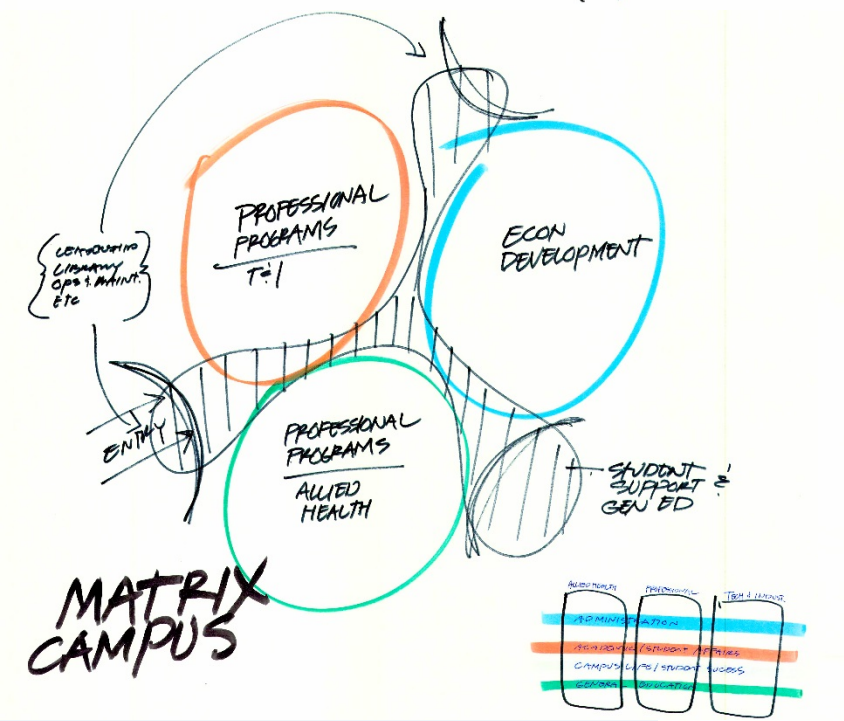 PROFESSIONAL
PROGRAMS
T&I
ECON
DEVELOPMENT
LIBRARY
OPS & MAINT.
ETC
ENTRY
PROFESSIONAL
PROGRAMS
ALLIED
HEALTH
STUDENT
SUPPORT &
GEN ED
MATRIX
CAMPUS
ALLIED HEALTH
PROFESSIONAL
TECH & INDUST.
ADMINISTRATION
ACADEMIC / STUDENT AFFAIRS
CAMPUS LIFE / STUDENT SUCESS
GENERAL EDUCATION